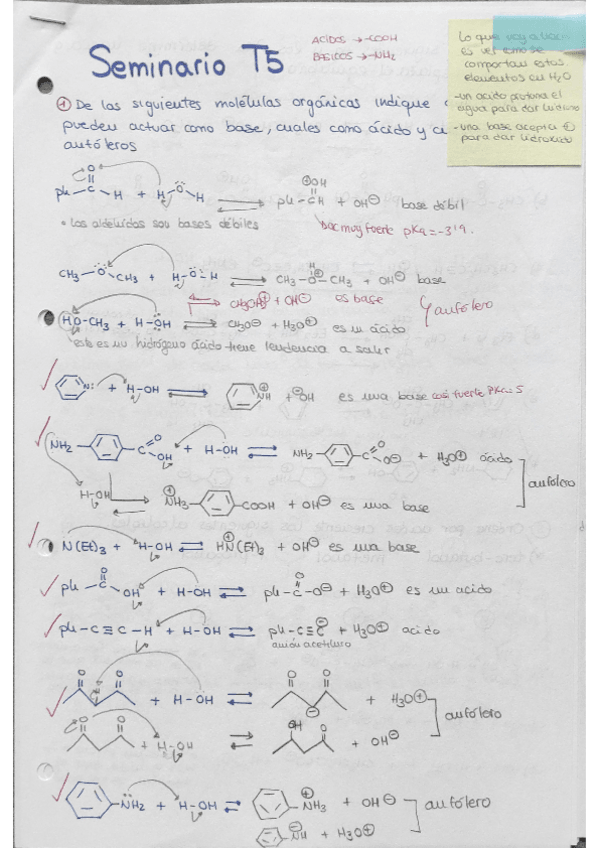 Seminario T5
ACIDOS → -COOH
BASICOS → -NH₂
Lo que voy a
es ver como se
comportan estos
elementos en H₂O
-un acido protona el
agua para dar
-una base acepta
para dar hidroxido
① De las siguientes moléculas orgánicas indique
pueden actuar como base, cuales como ácido y
autóleros
O
ph-C-H + H-O-H ⇌ ph-C-H + OH⊖ base débil
⊕OH
• Los aldehídos son bases débiles
bac muy fuerte pKa = -3'9.
CH₃-O-CH₃ + H-O-H ⇌ CH₃-O⊕-CH₃ + OH⊖ base
H
⇌ CH₃OH₂⊕ + OH⊖ es base
HO-CH₃ + H-OH ⇌ CH₃O⊖ + H₃O⊕ es un ácido
y aufólero
este es un hidrógeno ácido tiene tendencia a salir
N: + H-OH ⇌ ⊕NH + ⊖OH es una base casi fuerte pKa=5
NH₂- -C O OH + H-OH ⇌ NH₂- -C O O⊖ + H₃O⊕ ácido
aufólero
H-OH ⇌ ⊕NH₃- -COOH + OH⊖ es una base
N(Et)₃ + H-OH ⇌ H⊕N(Et)₃ + OH⊖ es una base
ph-C O OH + H-OH ⇌ ph-C O -O⊖ + H₃O⊕ es un acido
ph-C≡C-H + H-OH ⇌ ph-C≡C⊖ + H₃O⊕ acido
anión acetiluro
O O + H-OH ⇌ O O ⊖ + H₃O⊕
aufólero
O O + H-OH ⇌ OH O + OH⊖
-NH₂ + H-OH ⇌ -⊕NH₃ + OH⊖
aufólero
-⊖NH + H₃O⊕